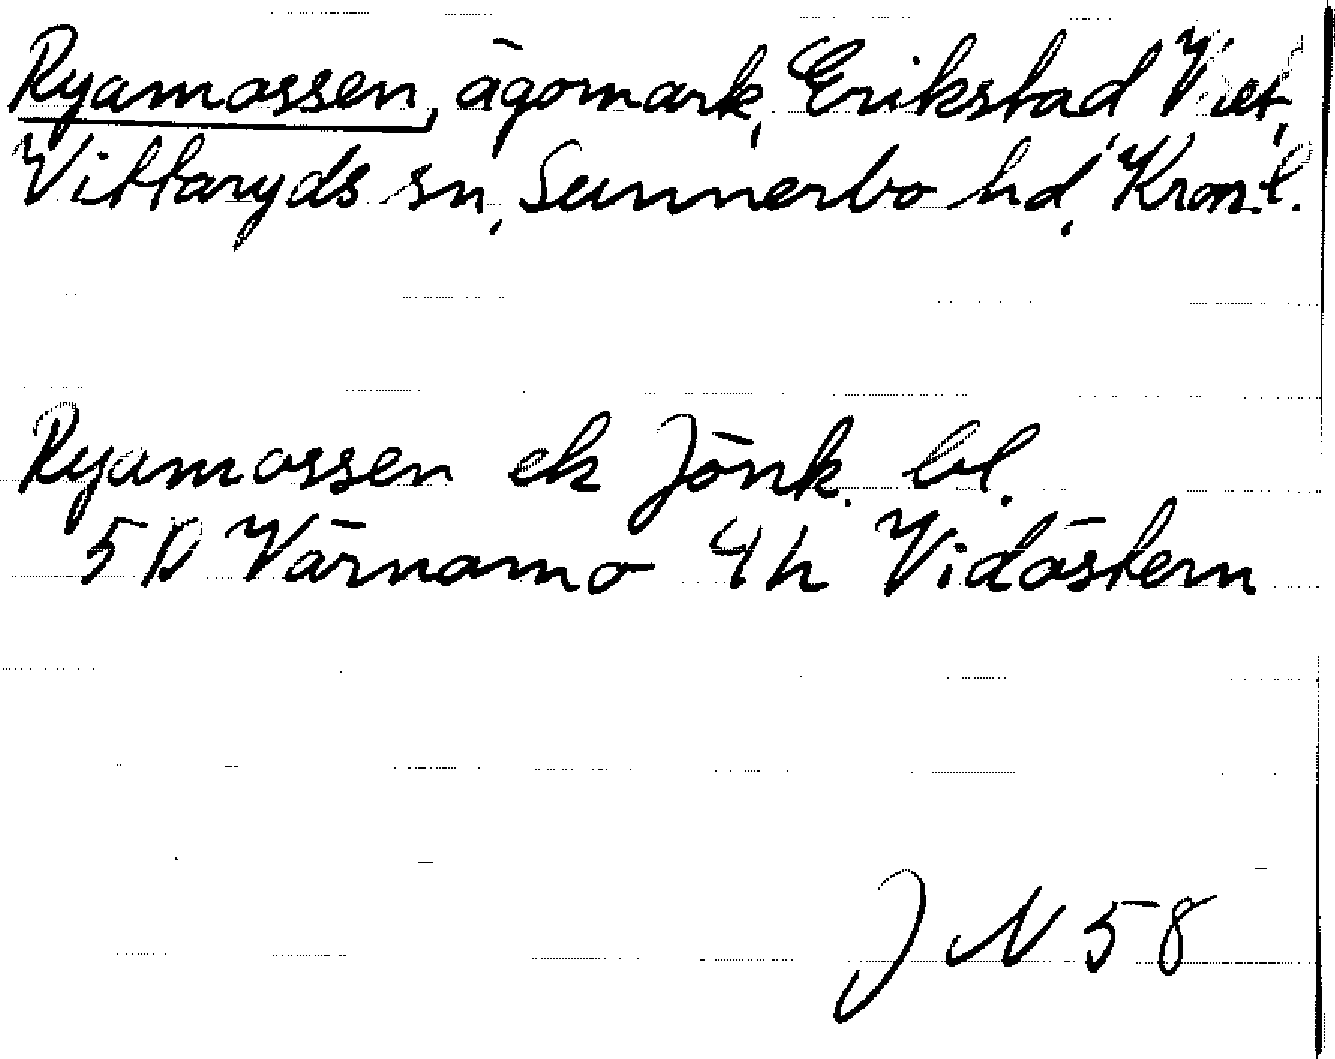 Ryamossen, ägomark, Erikstad, Viet,
Vittaryds sn, Sunnerbo hd, Kron.l.
Ryamossen ek Jönk. bl.
5D Värnamo 4h Vidöstern
JN 58